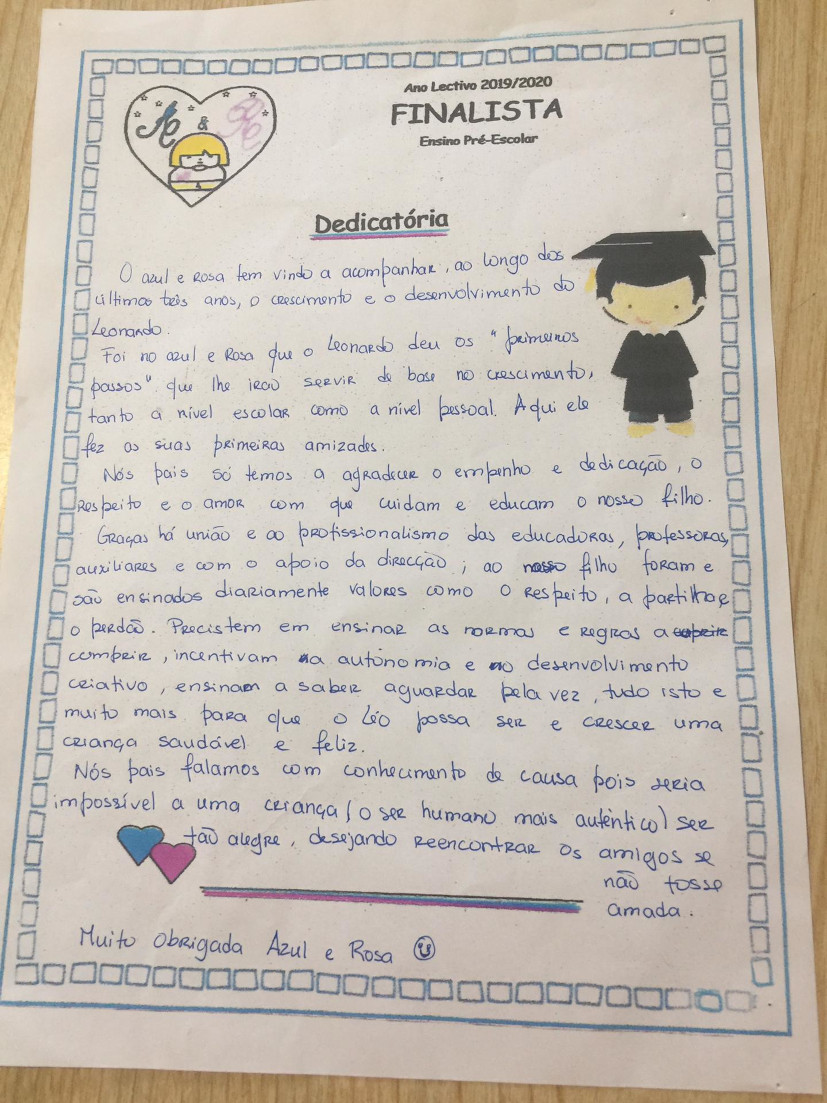 Ano Lectivo 2019/2020
FINALISTA
Ensino Pré-Escolar
A & R
Dedicatória
O azul e Rosa tem vindo a acompanhar, ao longo dos
últimos três anos, o crescimento e o desenvolvimento do
Leonardo.
Foi no azul e Rosa que o Leonardo deu os "primeiros
passos" que lhe irão servir de base no crescimento,
tanto a nível escolar como a nível pessoal. Aqui ele
fez as suas primeiras amizades.
Nós pais só temos a agradecer o empenho e dedicação, o
Respeito e o amor com que cuidam e educam o nosso filho.
Graças há união e ao profissionalismo das educadoras, professoras,
auxiliares e com o apoio da direcção; ao nosso filho foram e
são ensinados diariamente valores como o Respeito, a partilha e
o perdão. Precistem em ensinar as normas e regras a
cumprir, incentivam na autonomia e no desenvolvimento
criativo, ensinam a saber aguardar pela vez, tudo isto e
muito mais para que o Léo possa ser e crescer uma
criança saudável e feliz.
Nós pais falamos com conhecimento de causa pois seria
impossível a uma criança (o ser humano mais autêntico) ser
tão alegre, desejando reencontrar os amigos se
não fosse
amada.
Muito Obrigada Azul e Rosa